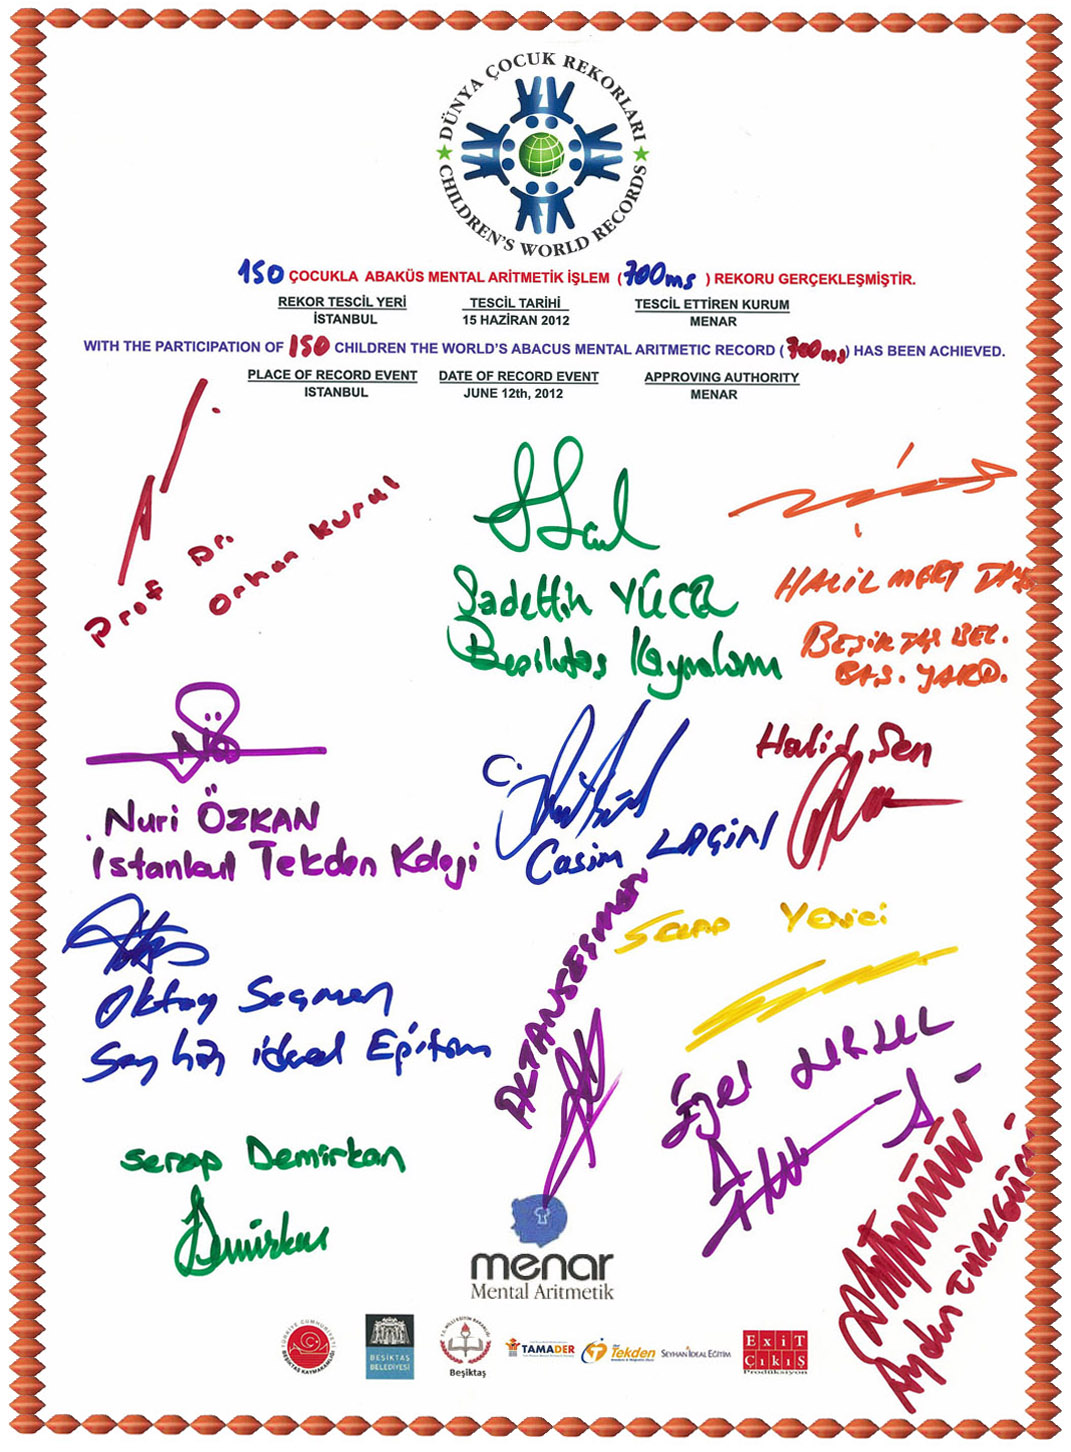 DÜNYA ÇOCUK REKORLARI
CHILDREN'S WORLD RECORDS
150 ÇOCUKLA ABAKÜS MENTAL ARİTMETİK İŞLEM (700ms) REKORU GERÇEKLEŞMİŞTİR.
REKOR TESCİL YERİ TESCİL TARİHİ TESCİL ETTİREN KURUM
İSTANBUL 15 HAZİRAN 2012 MENAR
WITH THE PARTICIPATION OF 150 CHILDREN THE WORLD'S ABACUS MENTAL ARITMETIC RECORD (700ms) HAS BEEN ACHIEVED.
PLACE OF RECORD EVENT DATE OF RECORD EVENT APPROVING AUTHORITY
ISTANBUL JUNE 12th, 2012 MENAR
Prof Dr.
Orhan Kural
Sadettin YÜCEL
Beşiktaş Kaymakamı
HALİL MERT
BEŞİKTAŞ BEL.
BAŞ. YARD.
Nuri ÖZKAN
İstanbul Tekden Koleji
Casim LAÇİN
Halid Şen
Oktay Seçmen
Seyhan ideal Eğitim
AKTAN SEÇMEN
Serap YENİCİ
Serap Demirkan
Demirkan
Aydın TÜRKGÜCÜ
menar
Mental Aritmetik
TÜRKİYE CUMHURİYETİ
BEŞİKTAŞ KAYMAKAMLIĞI
BEŞİKTAŞ
BELEDİYESİ
T.C. MİLLİ EĞİTİM BAKANLIĞI
Beşiktaş
TAMADER
Tekden
SEYHAN İDEAL EĞİTİM
EXİT
ÇIKIŞ
Prodüksiyon